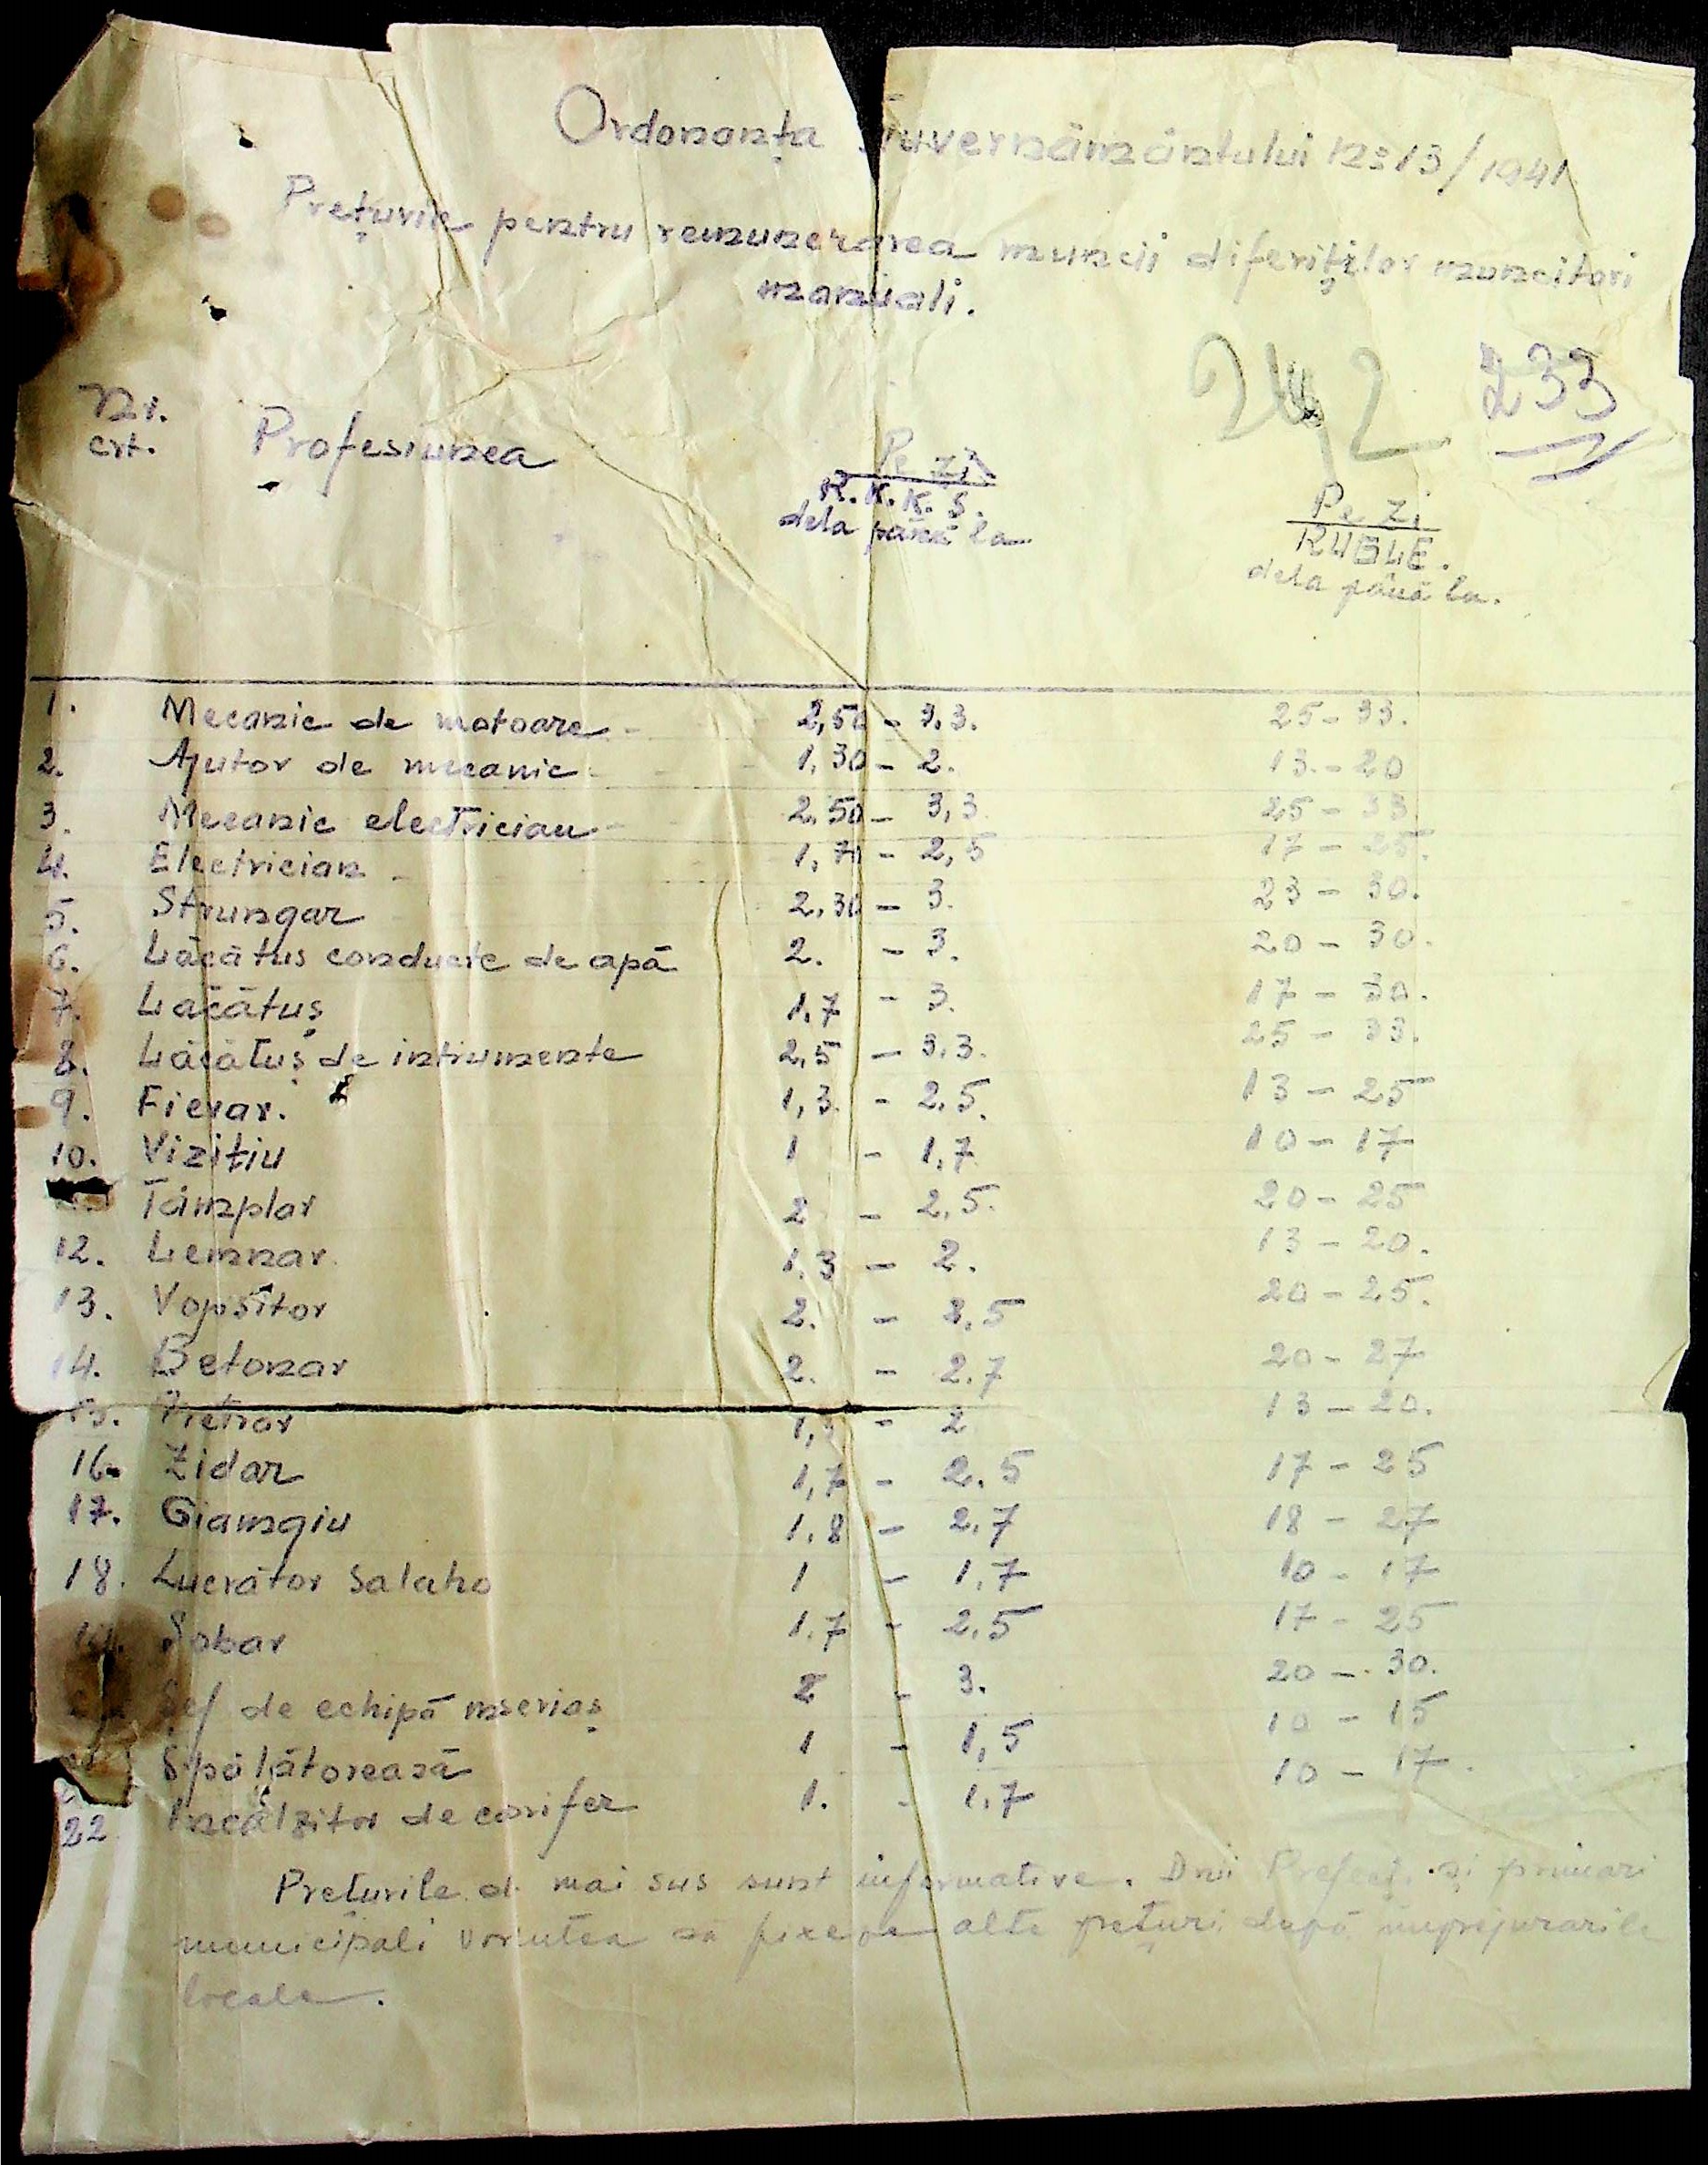 Ordonanța Guvernământului No 13/1941
Prețurile pentru remunerarea muncii diferiților muncitori
manuali.
242 233
Nr. crt. Profesiunea Pe zi R.K.K.S. dela până la Pe zi RUBLE. dela până la.
1. Mecanic de motoare 2,50 - 3,3. 25 - 33.
2. Ajutor de mecanic 1,30 - 2. 13 - 20
3. Mecanic electrician 2,50 - 3,3 25 - 33
4. Electrician 1,70 - 2,5 17 - 25.
5. Strungar 2,30 - 3. 23 - 30.
6. Lăcătus conducte de apă 2. - 3. 20 - 30.
7. Lăcătuș 1,7 - 3. 17 - 30.
8. Lăcătuș de intrumente 2,5 - 3.3. 25 - 33.
9. Fierar. 1,3. - 2.5. 13 - 25
10. Vizițiu 1 - 1,7 10 - 17
Tâmplar 2 - 2,5. 20 - 25
12. Lemnar 1.3 - 2. 13 - 20.
13. Vopsitor 2. - 2,5 20 - 25.
14. Betonar 2. - 2.7 20 - 27
15. Pietrar 1,3 - 2 13 - 20.
16. Zidar 1,7 - 2.5 17 - 25
17. Giamgiu 1.8 - 2,7 18 - 27
18. Lucrător Salaho 1 - 1.7 10 - 17
19. Sobar 1.7 - 2,5 17 - 25
Șef de echipă mseriaș 2 - 3. 20 - 30.
Spălătorească 1 - 1,5 10 - 15
22 Încălzitor de calorifer 1. - 1.7 10 - 17.
Prețurile de mai sus sunt informative. Dnii Prefecți și primari
municipali vor putea să fixeze alte prețuri după împrejurările
locale.